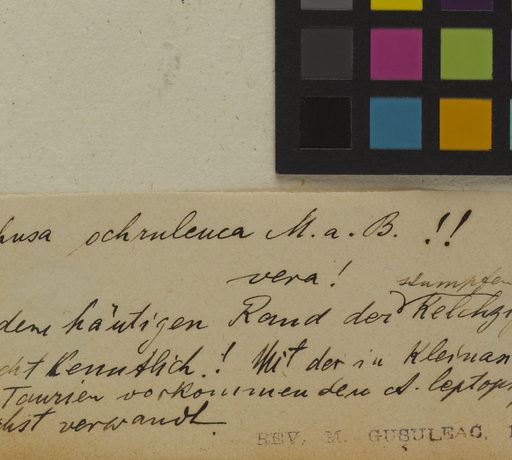 husa ochruleuca M. a. B. !!
vera!
stumpfen
dem häutigen Rand der Kelchz
cht kenntlich! Mit der in Kleinas
Taurien vorkommenden A. leptop
chst verwandt.
REV. M. GUŞULEAC, 1